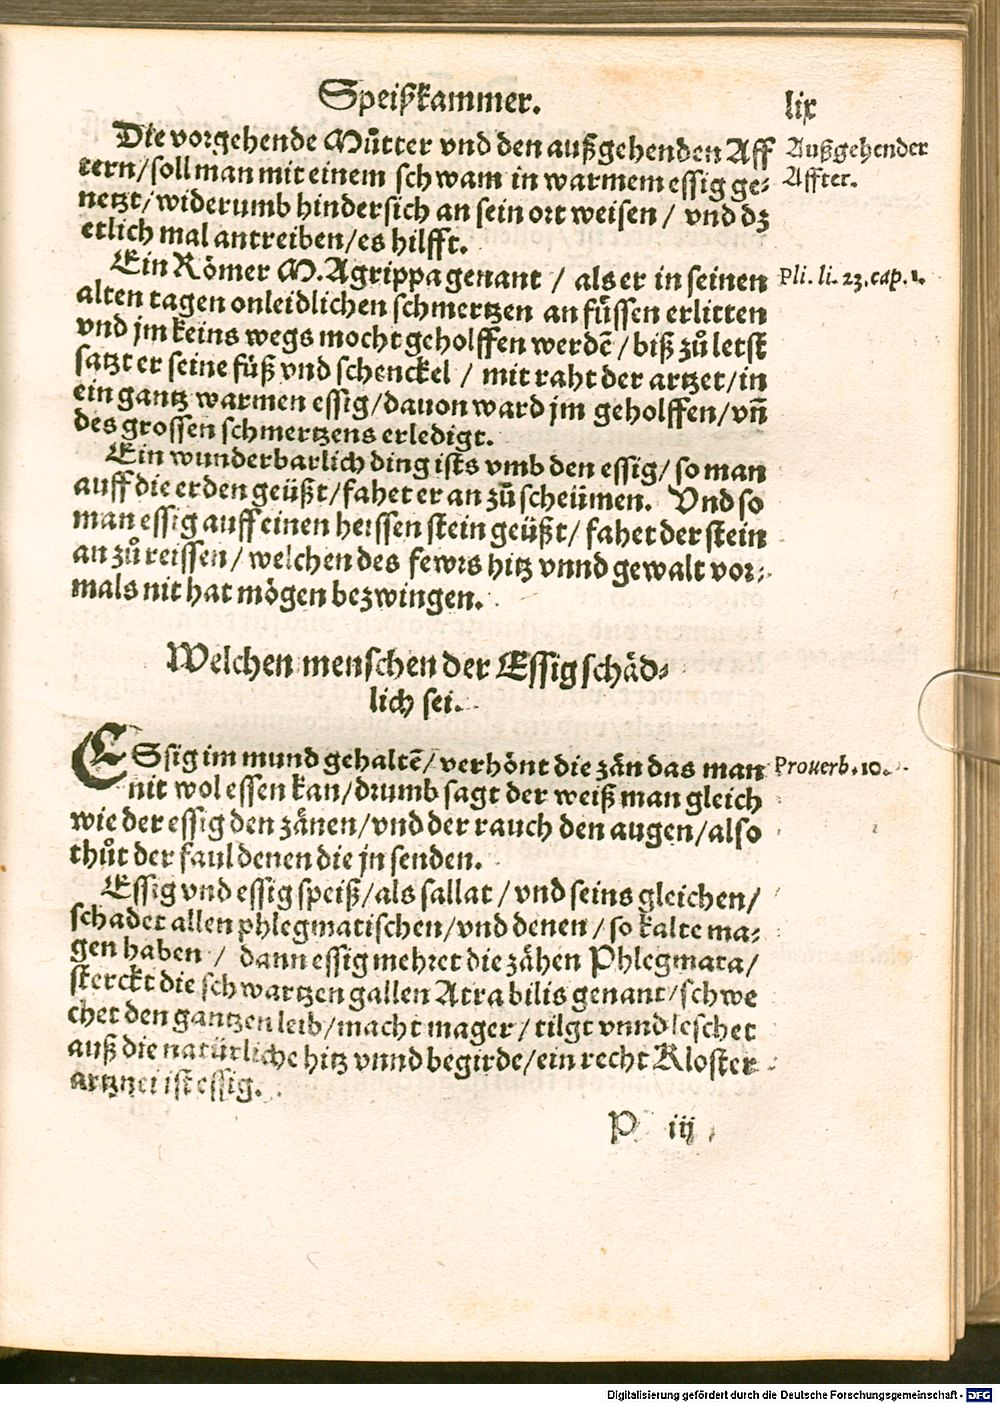 Speißkammer.
lix
Die vorgehende Můtter vnd den außgehenden Aff
tern/soll man mit einem schwam in warmem essig ge-
netzt/widerumb hindersich an sein ort weisen/ vnd dz
etlich mal antreiben/es hilfft.
Außgehender
Affter.
Ein Römer M. Agrippa genant / als er in seinen
alten tagen onleidlichen schmertzen an füssen erlitten
vnd jm keins wegs mocht geholffen werdē/biß zů letst
satzt er seine füß vnd schenckel / mit raht der artzet/in
ein gantz warmen essig/dauon ward jm geholffen/vñ
des grossen schmertzens erledigt.
Pli. li. 23. cap. 1.
Ein wunderbarlich ding ists vmb den essig/so man
auff die erden geüßt/fahet er an zů scheümen. Vnd so
man essig auff einen heissen stein geüßt/fahet der stein
an zů reissen/welchen des fewrs hitz vnnd gewalt vor-
mals nit hat mögen bezwingen.
Welchen menschen der Essig schäd-
lich sei.
ESsig im mund gehaltē/verhönt die zän das man
nit wol essen kan/drumb sagt der weiß man gleich
wie der essig den zänen/vnd der rauch den augen/also
thůt der faul denen die jn senden.
Prouerb. 10.
Essig vnd essig speiß/als sallat/vnd seins gleichen/
schadet allen phlegmatischen/vnd denen/so kalte ma-
gen haben / dann essig mehret die zähen Phlegmata/
sterckt die schwartzen gallen Atra bilis genant/schwe
chet den gantzen leib/macht mager/tilgt vnnd leschet
auß die natürliche hitz vnnd begirde/ein recht Kloster
artznei ist essig.
P iij
Digitalisierung gefördert durch die Deutsche Forschungsgemeinschaft - DFG